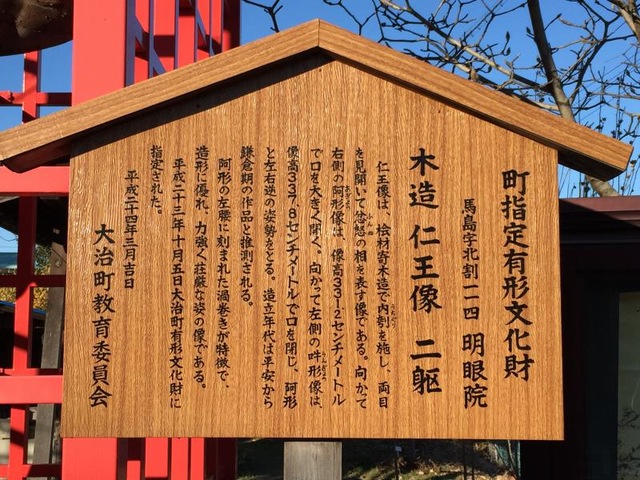 町指定有形文化財
馬島字北割一二四 明眼院
木造 仁王像 二躯
仁王像は、桧材寄木造で内刳を施し、両目
を見開いて忿怒の相を表す像である。向かて
右側の阿形像は、像高331.2センチメートル
で口を大きく開く。向かって左側の吽形像は、
像高337.8センチメートルで口を閉じ、阿形
と左右逆の姿勢をとる。造立年代は平安から
鎌倉期の作品と推測される。
阿形の左腰に刻まれた渦巻きが特徴で、
造形に優れ、力強く荘厳な姿の像である。
平成二十三年十月五日大治町有形文化財に
指定された。
平成二十四年三月吉日
大治町教育委員会